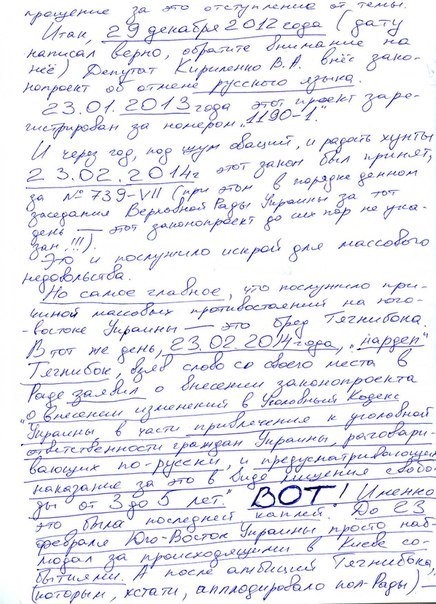 прощение за это отступления от темы.
Итак, 29 декабря 2012 года (дату
написал верно, обратите внимание на
неё) Депутат Кириленко В.А. внёс зако-
нопроект об отмене русского языка.
23.01.2013 года этот проект заре-
гистрирован за номером "1190-1".
И через год, под шум оваций, и радость хунты,
23.02.2014г этот закон был принят,
за № 739-VII (при этом в порядке денном
заседания Верховной Рады Украины за тот
день — этот законопроект до сих пор не ука-
зан!!!).
Это и послужило искрой для массового
недовольства.
Но самое главное, что послужило при-
чиной массовых противостояний на юго-
-востоке Украины — это бред Тягнибока.
В тот же день, 23.02.2014 года, "пардеп"
Тягнибок, взяв слово со своего места в
Раде заявил о внесении законопроекта
"о внесении изменений в Уголовный Кодекс
Украины в части привлечения к уголовной
ответственности граждан Украины, разговари-
вающих по-русски, и предусматривающем
наказание за это в виде лишения свобо-
ды от 3 до 5 лет." ВОТ! Именно
это была последней каплей. До 23
февраля Юго-Восток Украины просто наб-
людал за происходящими в Киеве со-
бытиями. А после амбиций Тягнибока,
(которым, кстати, апплодировало пол-Рады) —